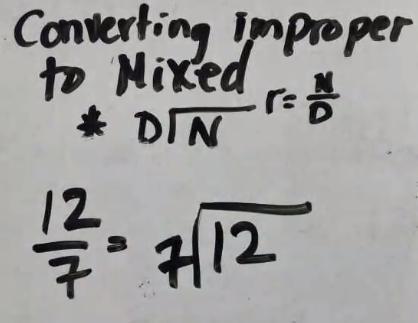 Converting improper
to Mixed
* D√N r= N/D
12/7 = 7√12